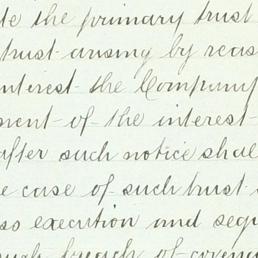 te the primary trust
trust arising by reas
interest the Company
ment of the interest
after such notice shal
e case of such trust
so execution and sequ
such breach of covena